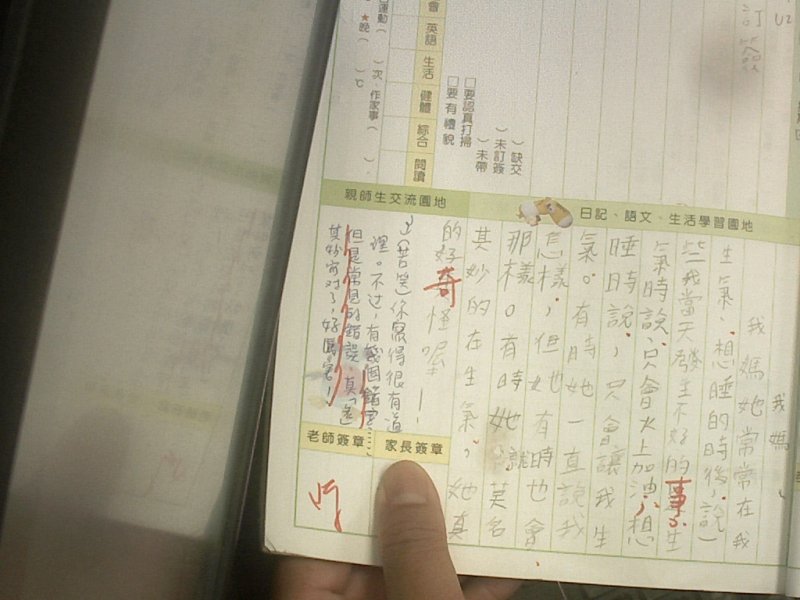 訂簽
會
英語
生活
健體
綜合
閱讀
運動( )次、作家事( )
★晚( )℃
□要認真打掃
□要有禮貌
( )缺交
( )未訂簽
( )未帶
日記、語文、生活學習園地
我媽
我媽她常常在我
生氣、想睡的時後,說
些我當天發生不好的事.
氣時說,只會火上加油.想
睡時說,只會讓我生
氣。有時她一直說我
怎樣,但她有時也會
那樣。有時她就莫名
其妙的在生氣,她真
的好奇怪喔!
親師生交流園地
(苦笑)你寫得很有道
理。不过,有幾個錯字……
但是常見的錯誤,真
其妙寫对了,好厲害!
老師簽章
家長簽章